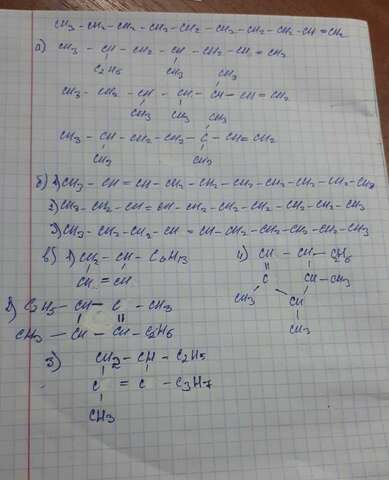 CH3 - CH2 - CH2 - CH2 - CH2 - CH2 - CH2 - CH2 - CH = CH2
а) CH3 - CH - CH2 - CH - CH2 - CH = CH2
C2H5 CH3 CH3
CH3 - CH2 - CH - CH - CH - CH = CH2
CH3 CH3 CH3
CH3 - CH - CH2 - CH2 - C - CH = CH2
CH3 CH3
б) 1) CH3 - CH = CH - CH2 - CH2 - CH2 - CH2 - CH2 - CH2 - CH3
2) CH3 - CH2 - CH = CH - CH2 - CH2 - CH2 - CH2 - CH2 - CH3
3) CH3 - CH2 - CH2 - CH = CH - CH2 - CH2 - CH2 - CH2 - CH3
в) 1) CH2 - CH - C6H13
CH = CH
4) CH - CH - C2H5
C CH - CH3
CH3 CH
CH3
2) C2H5 - CH - C - CH3
CH3 - CH - CH - C2H5
3) CH2 - CH - C2H5
C = C - C3H7
CH3